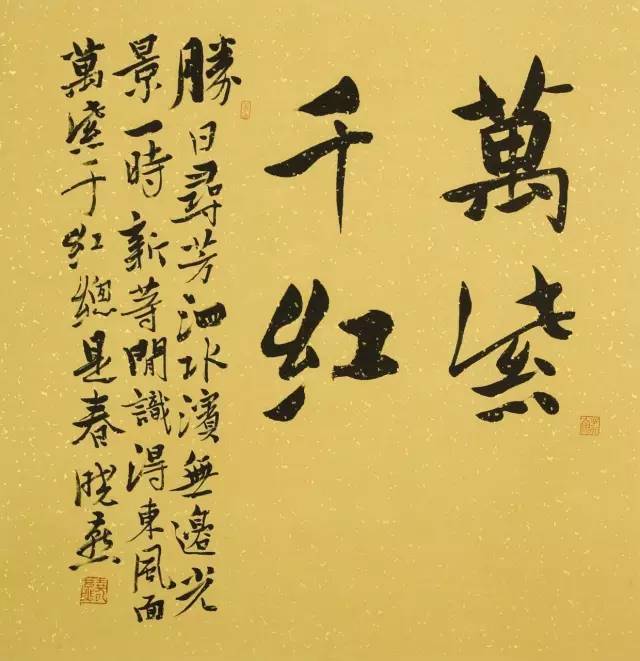 萬紫
千紅
勝日尋芳泗水濱無邊光
景一時新等閒識得東風面
萬紫千紅總是春曉燕